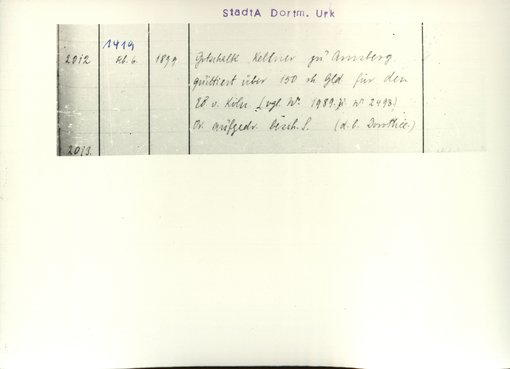 StadtA Dortm. Urk
1419
2012 1899 Gotschalk Kellner zu Arnsberg
quittiert über 150 rh. Gld für den
EB v. Köln. (vgl. Nr. 1989. Nr 2493)
Or. aufgedr. besch. S. (d. b. Dorothee.)
2013.